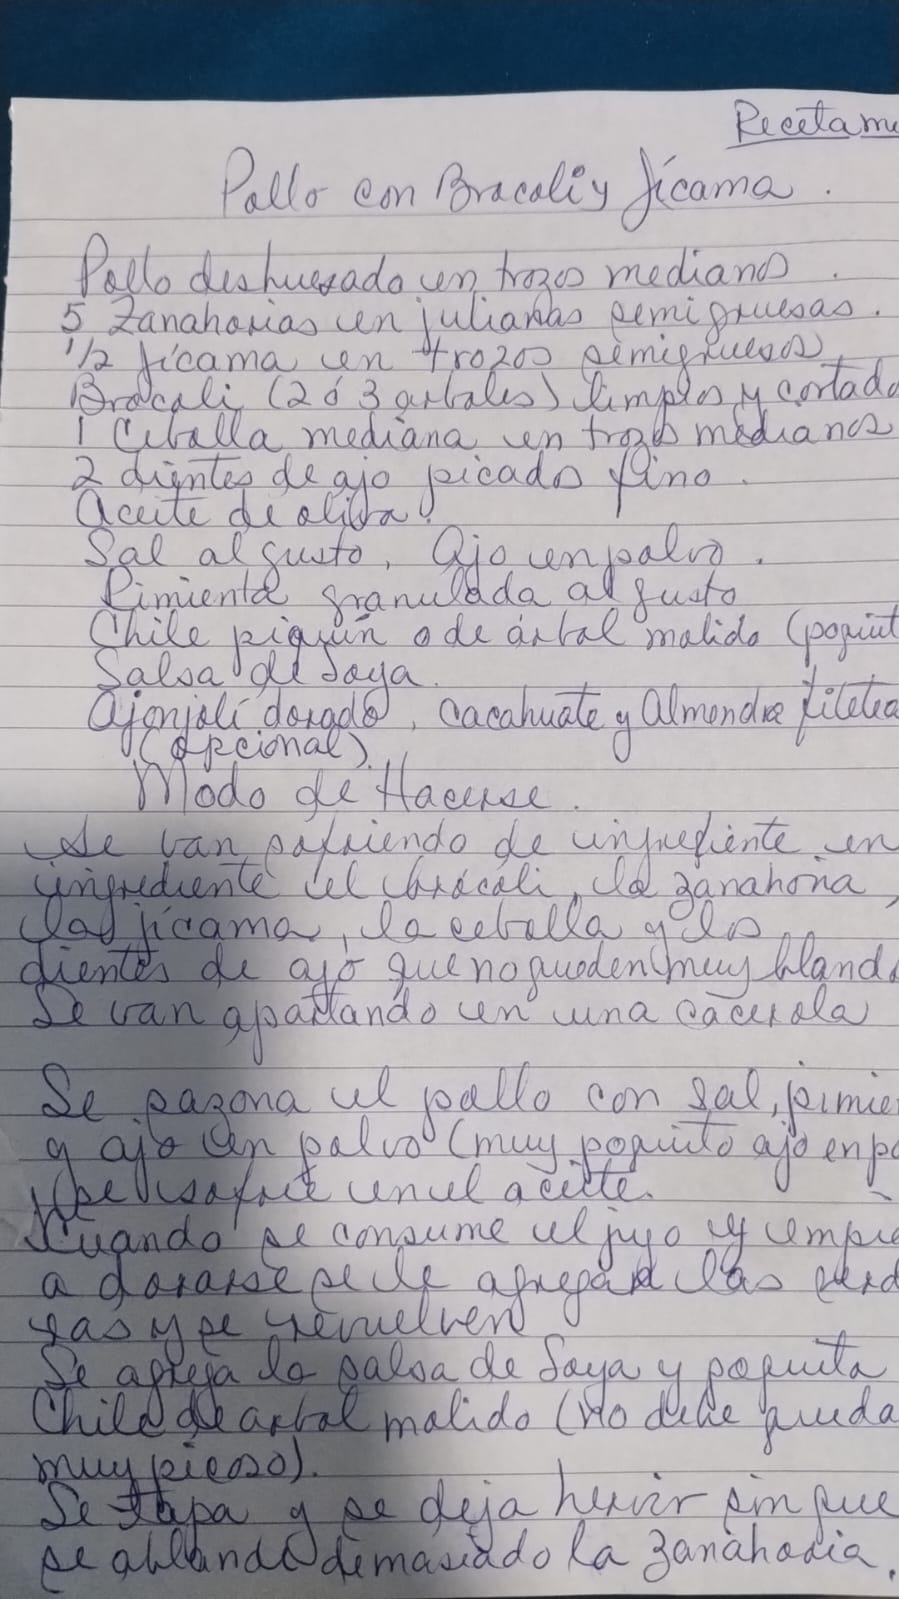 Receta me
Pollo con Brócoli y Jícama.
Pollo deshuesado en trozos medianos.
5 Zanahorias en julianas semigruesas.
1/2 Jícama en trozos semigruesos
Brócoli (2 ó 3 arboles) limpios y cortado
1 Cebolla mediana en trozos medianos
2 dientes de ajo picados fino.
Aceite de oliva.
Sal al gusto, Ajo en polvo.
Pimienta granulada al gusto
Chile piquín o de árbol molido (poquit
Salsa de Soya.
Ajonjolí dorado, Cacahuate y Almendra filetea
(opcional).
Modo de Hacerse.
Se van sofriendo de ingrediente en
ingrediente el brócoli, la zanahoria,
la jícama, la cebolla y los
dientes de ajo que no queden muy bland
Se van apartando en una cacerola
Se sazona el pollo con sal, pimie
y ajo en polvo (muy poquito ajo en po
y se sofríe en el aceite.
Cuando se consume el jugo y empie
a dorarse se le agregan las verd
ras y se revuelven
Se agrega la salsa de Soya y poquita
Chile de arbol molido (no debe queda
muy picoso).
Se tapa y se deja hervir sin que
se ablande demasiado la zanahoria.